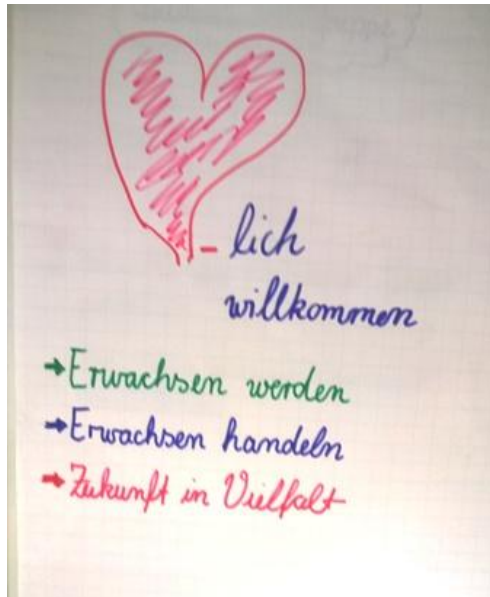 - lich
willkommen
→ Erwachsen werden
→ Erwachsen handeln
→ Zukunft in Vielfalt